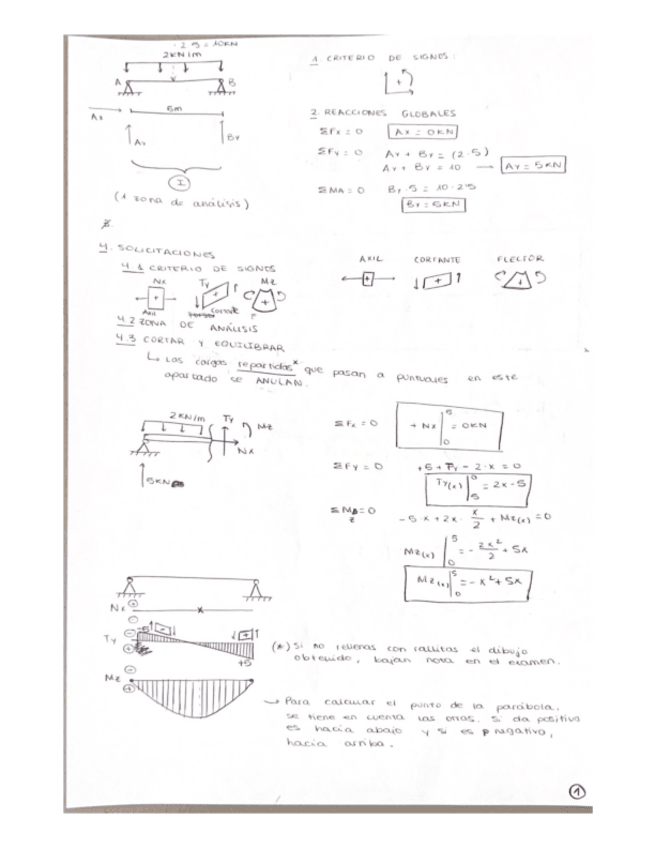 2·5 = 10KN
2KN/m
A B
5m
Ax
Ay By
I
(1 zona de análisis)
1. CRITERIO DE SIGNOS:
+
2. REACCIONES GLOBALES
ΣFx = 0 Ax = 0KN
ΣFy = 0 Ay + By = (2·5)
Ay + By = 10 → Ay = 5KN
ΣMA = 0 By·5 = 10·2'5
By = 5KN
3.
4. SOLICITACIONES
4.1 CRITERIO DE SIGNOS
Nx Ty Mz
+ + +
Axil Cortante F
AXIL CORTANTE FLECTOR
+ + +
4.2 ZONA DE ANÁLISIS
4.3 CORTAR Y EQUILIBRAR
↳ Las cargas repartidas* que pasan a puntuales en este
apartado se ANULAN.
2KN/m Ty Mz
Nx
5KN
ΣFx = 0 + Nx |₀⁵ = 0KN
ΣFy = 0 +5 + Ty - 2·x = 0
Ty(x) |₅⁰ = 2x-5
ΣM = 0 -5·x + 2x· x/2 + Mz(x) = 0
z
Mz(x) |₀⁵ = - 2x²/2 + 5x
Mz(x) |₀⁵ = -x² + 5x
Nx + x
-
Ty - -5
+ +5
Mz -
+
(*) Si no rellenas con rallitas el dibujo
obtenido, bajan nota en el examen.
→ Para calcular el punto de la parábola,
se tiene en cuenta las otras. Si da positivo
es hacia abajo y si es negativo,
hacia arriba.
1